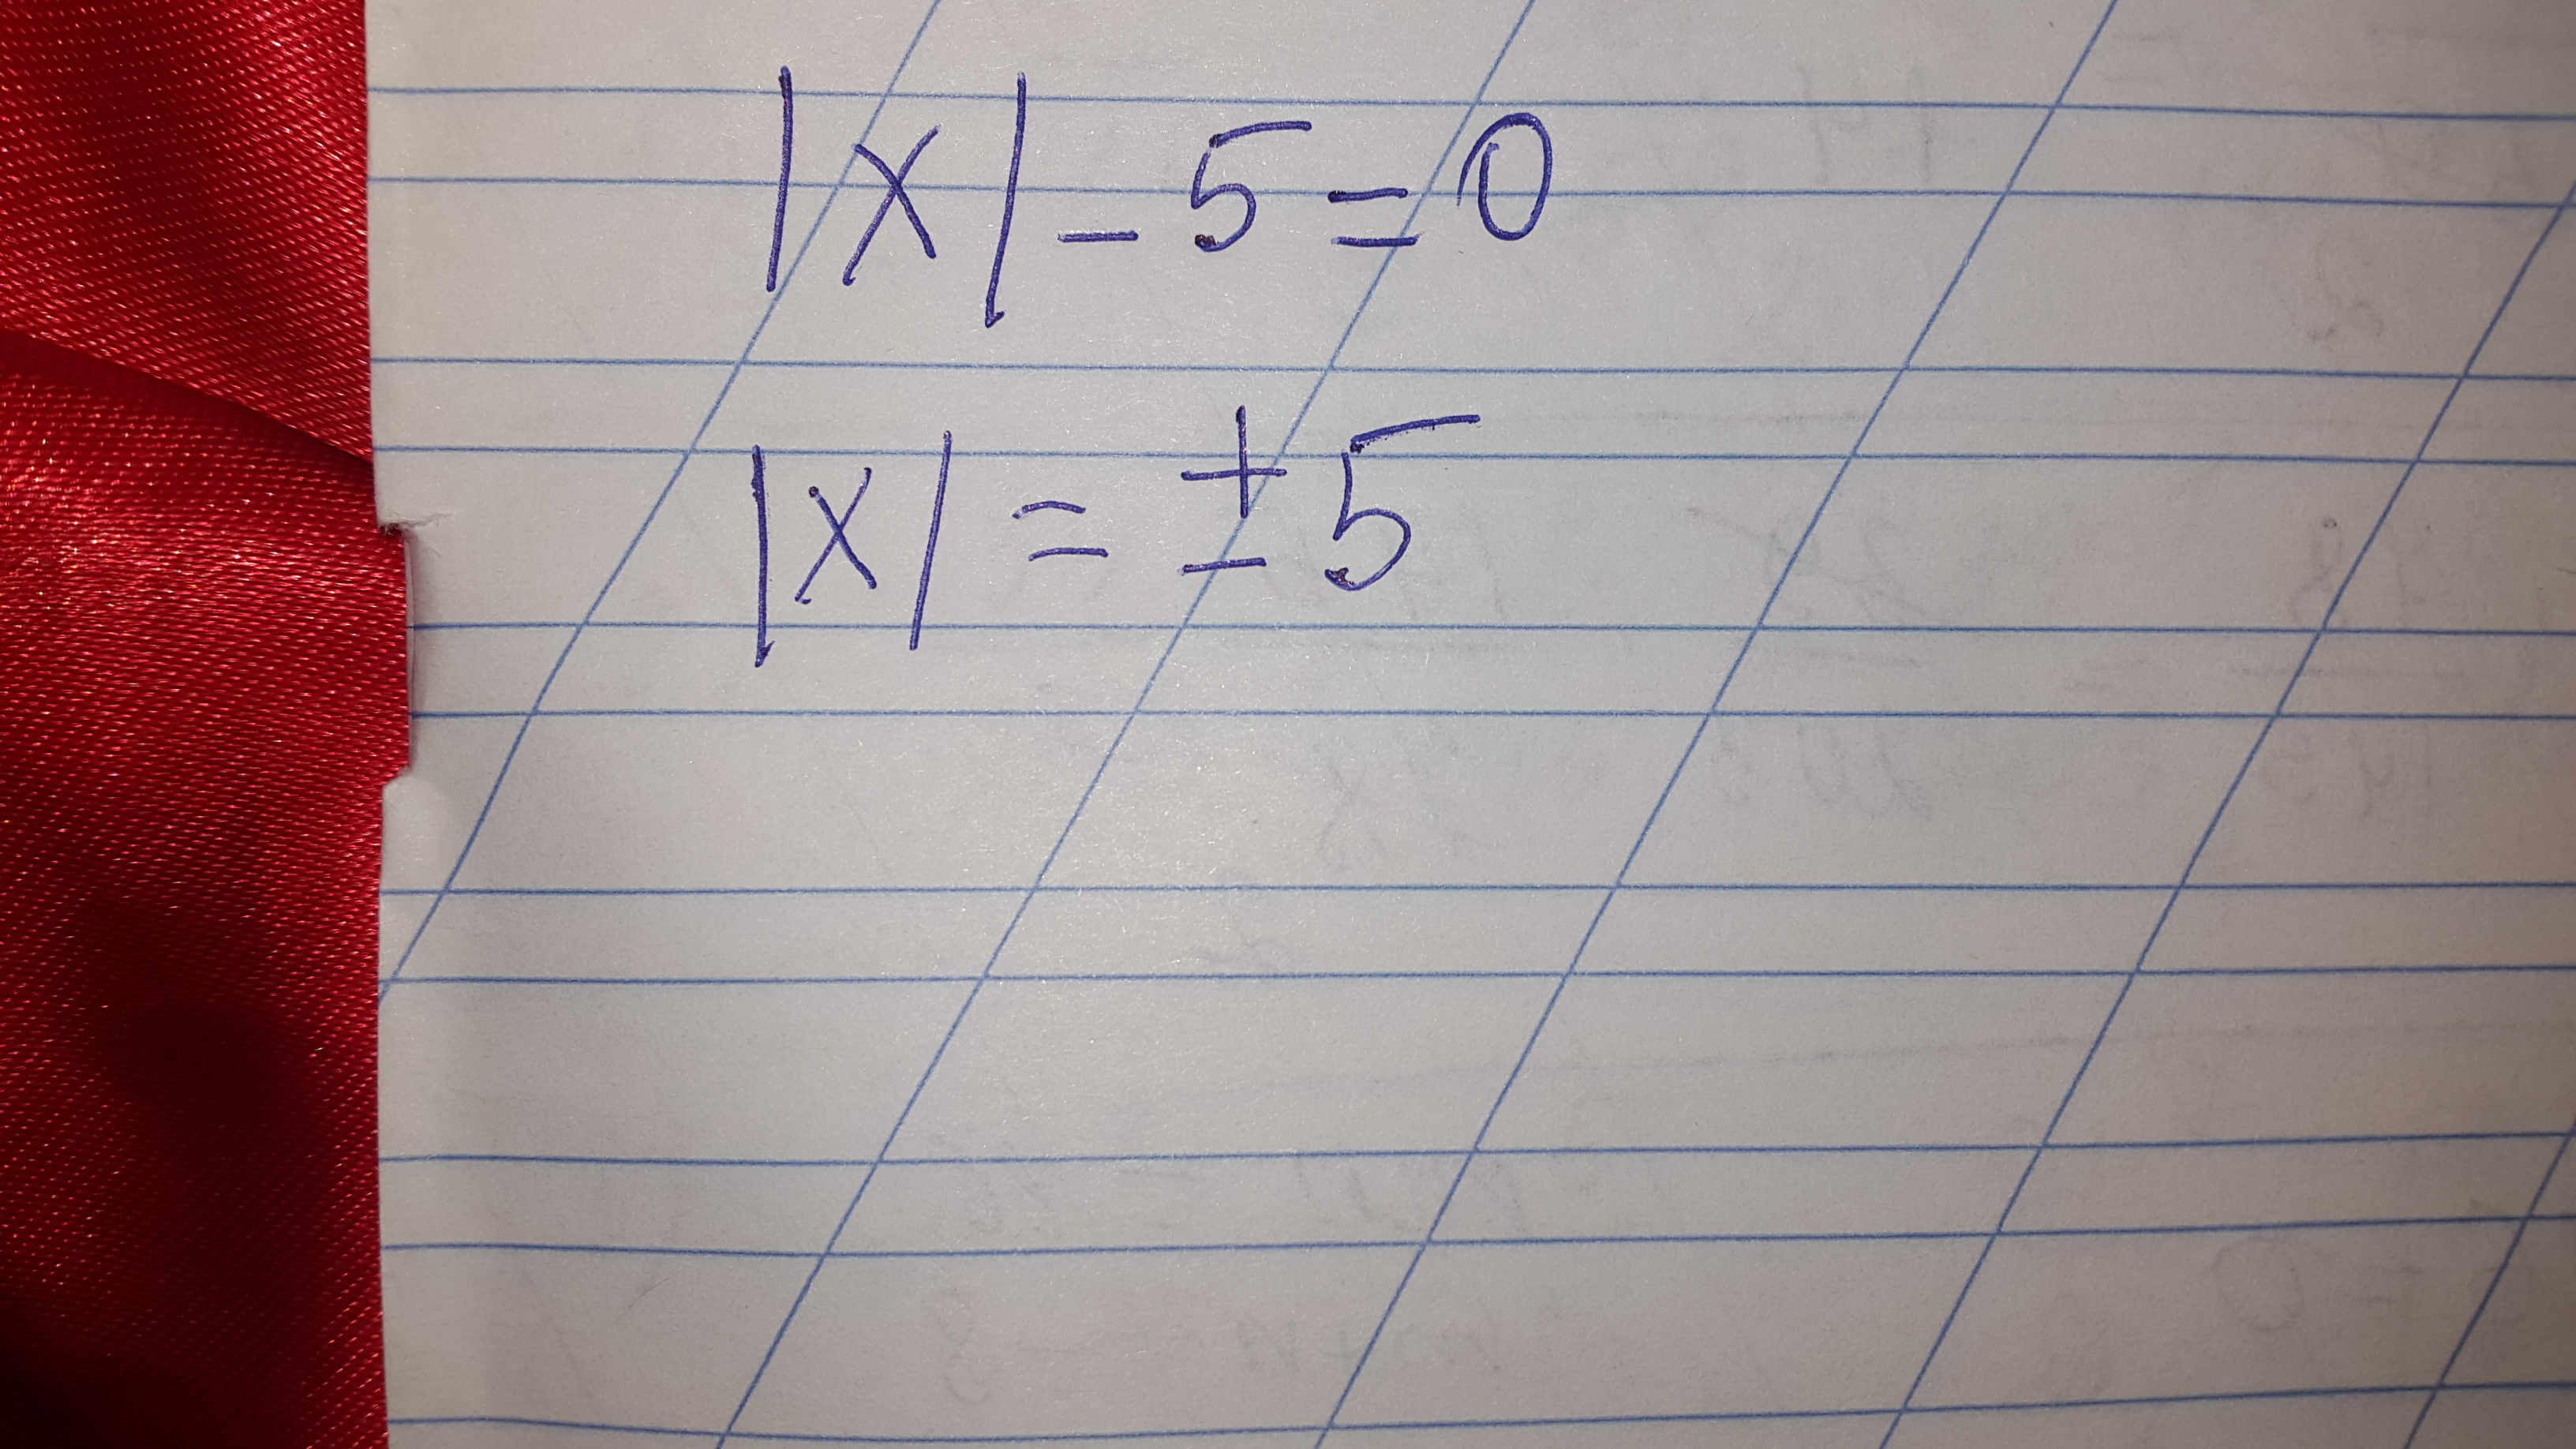 |x| - 5 = 0
|x| = ± 5